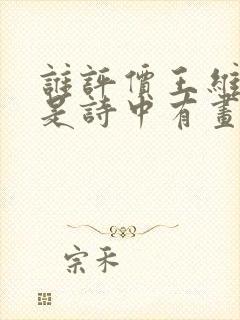 誰評價王維
是詩中有畫
宗禾